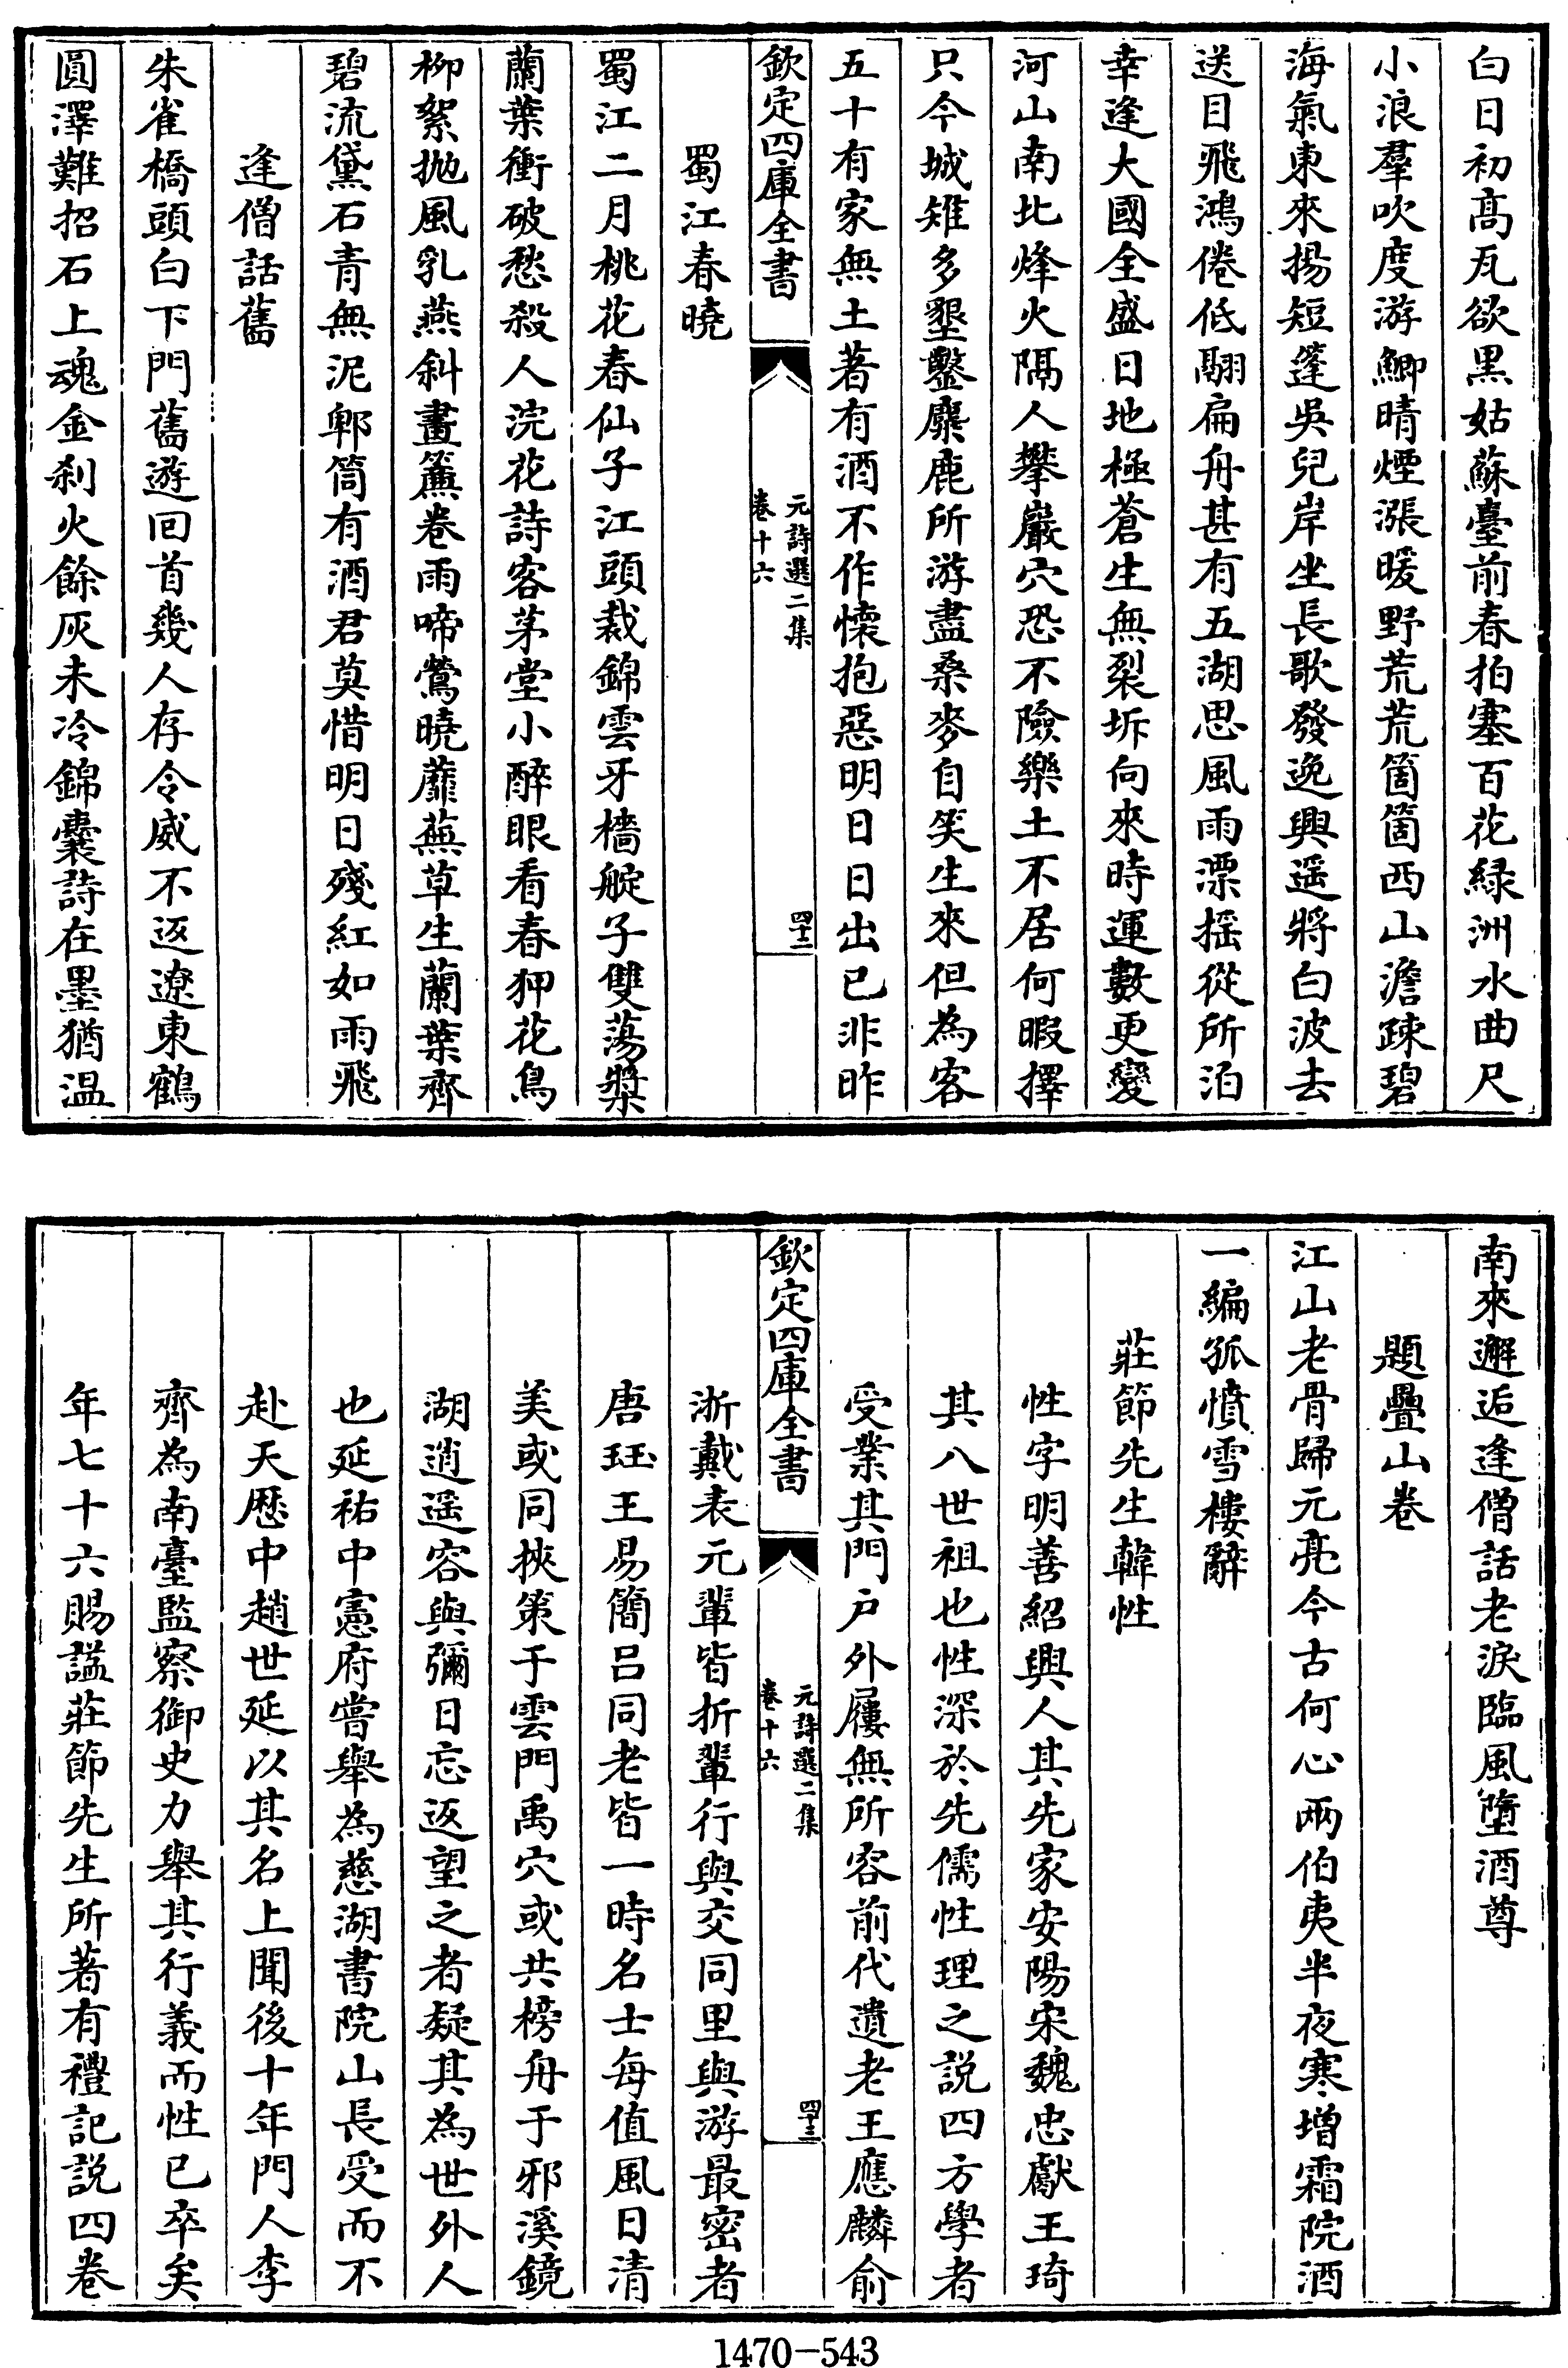 白日初髙瓦欲黒姑蘇臺前春拍塞百花緑洲水曲尺
小浪羣吹度游鯽晴煙漲暖野荒荒箇箇西山澹疎碧
海氣東來揚短篷吳兒岸坐長歌發逸興遥將白波去
送目飛鴻倦低翮扁舟甚有五湖思風雨漂揺從所泊
幸逢大國全盛日地極蒼生無裂坼向來時運數更變
河山南北烽火隔人攀巖穴恐不險樂土不居何暇擇
只今城雉多墾鑿麋鹿所游盡桑麥自笑生來但為客
五十有家無土著有酒不作懷抱惡明日日出已非昨
欽定四庫全書
元詩選二集
卷十六
四十二
蜀江春曉
蜀江二月桃花春仙子江頭裁錦雲牙檣艇子雙蕩槳
蘭葉衝破愁殺人浣花詩客茅堂小醉眼看春狎花鳥
柳絮抛風乳燕斜畫簾卷雨啼鶯曉蘼蕪草生蘭葉齊
碧流黛石青無泥郫筒有酒君莫惜明日殘紅如雨飛
逢僧話舊
朱雀橋頭白下門舊遊回首幾人存令威不返遼東鶴
圓澤難招石上魂金刹火餘灰未冷錦囊詩在墨猶温
南來邂逅逢僧話老淚臨風墮酒尊
題疊山卷
江山老骨歸元亮今古何心兩伯夷半夜寒增霜院酒
一編孤憤雪樓辭
莊節先生韓性
性字明善紹興人其先家安陽宋魏忠獻王琦
其八世祖也性深於先儒性理之説四方學者
受業其門户外屨無所容前代遺老王應麟俞
欽定四庫全書
元詩選二集
卷十六
四十三
浙戴表元輩皆折輩行與交同里與游最密者
唐珏王易簡呂同老皆一時名士每值風日清
美或同挾策于雲門禹穴或共榜舟于邪溪鏡
湖逍遥容與彌日忘返望之者疑其為世外人
也延祐中憲府嘗舉為慈湖書院山長受而不
赴天厯中趙世延以其名上聞後十年門人李
齊為南臺監察御史力舉其行義而性已卒矣
年七十六賜諡莊節先生所著有禮記説四卷
1470-543